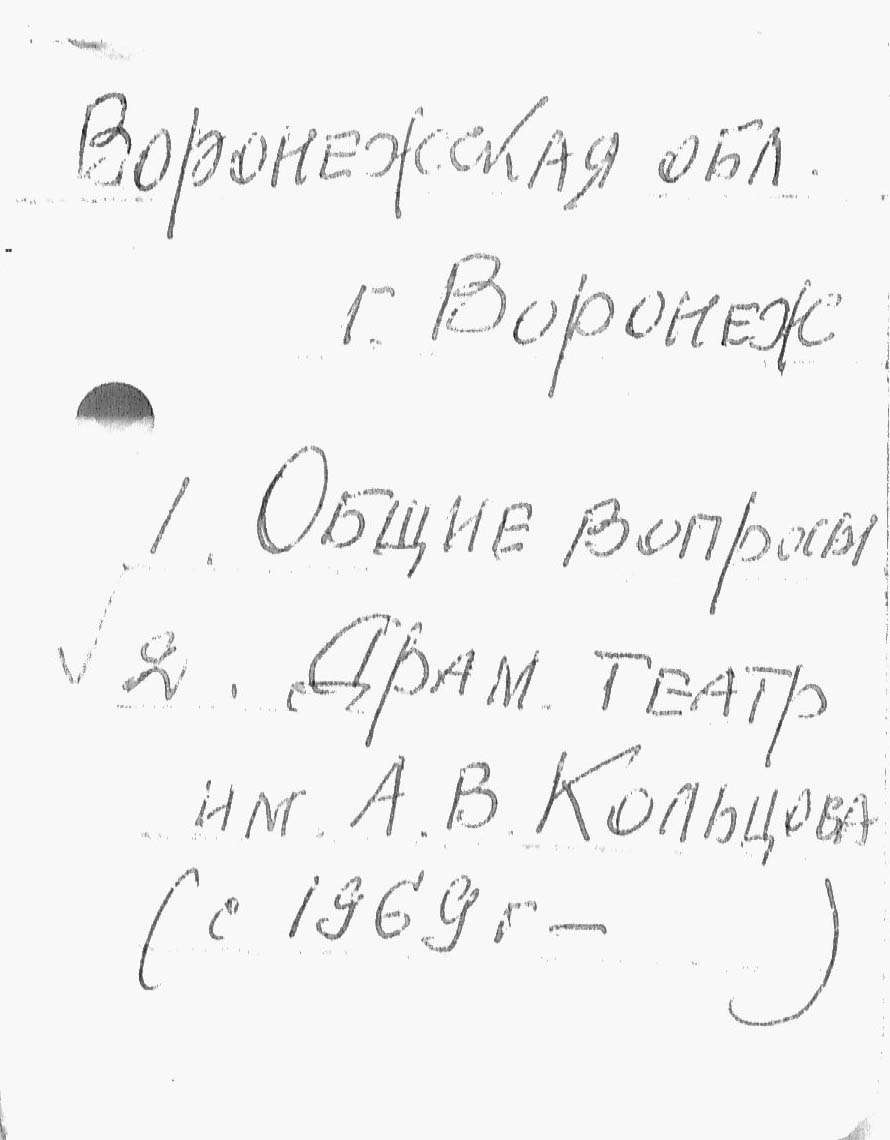 Воронежская обл.
г. Воронеж
1. Общие вопросы
√ 2. Драм. театр
им. А. В. Кольцова
(с 1969 г – )